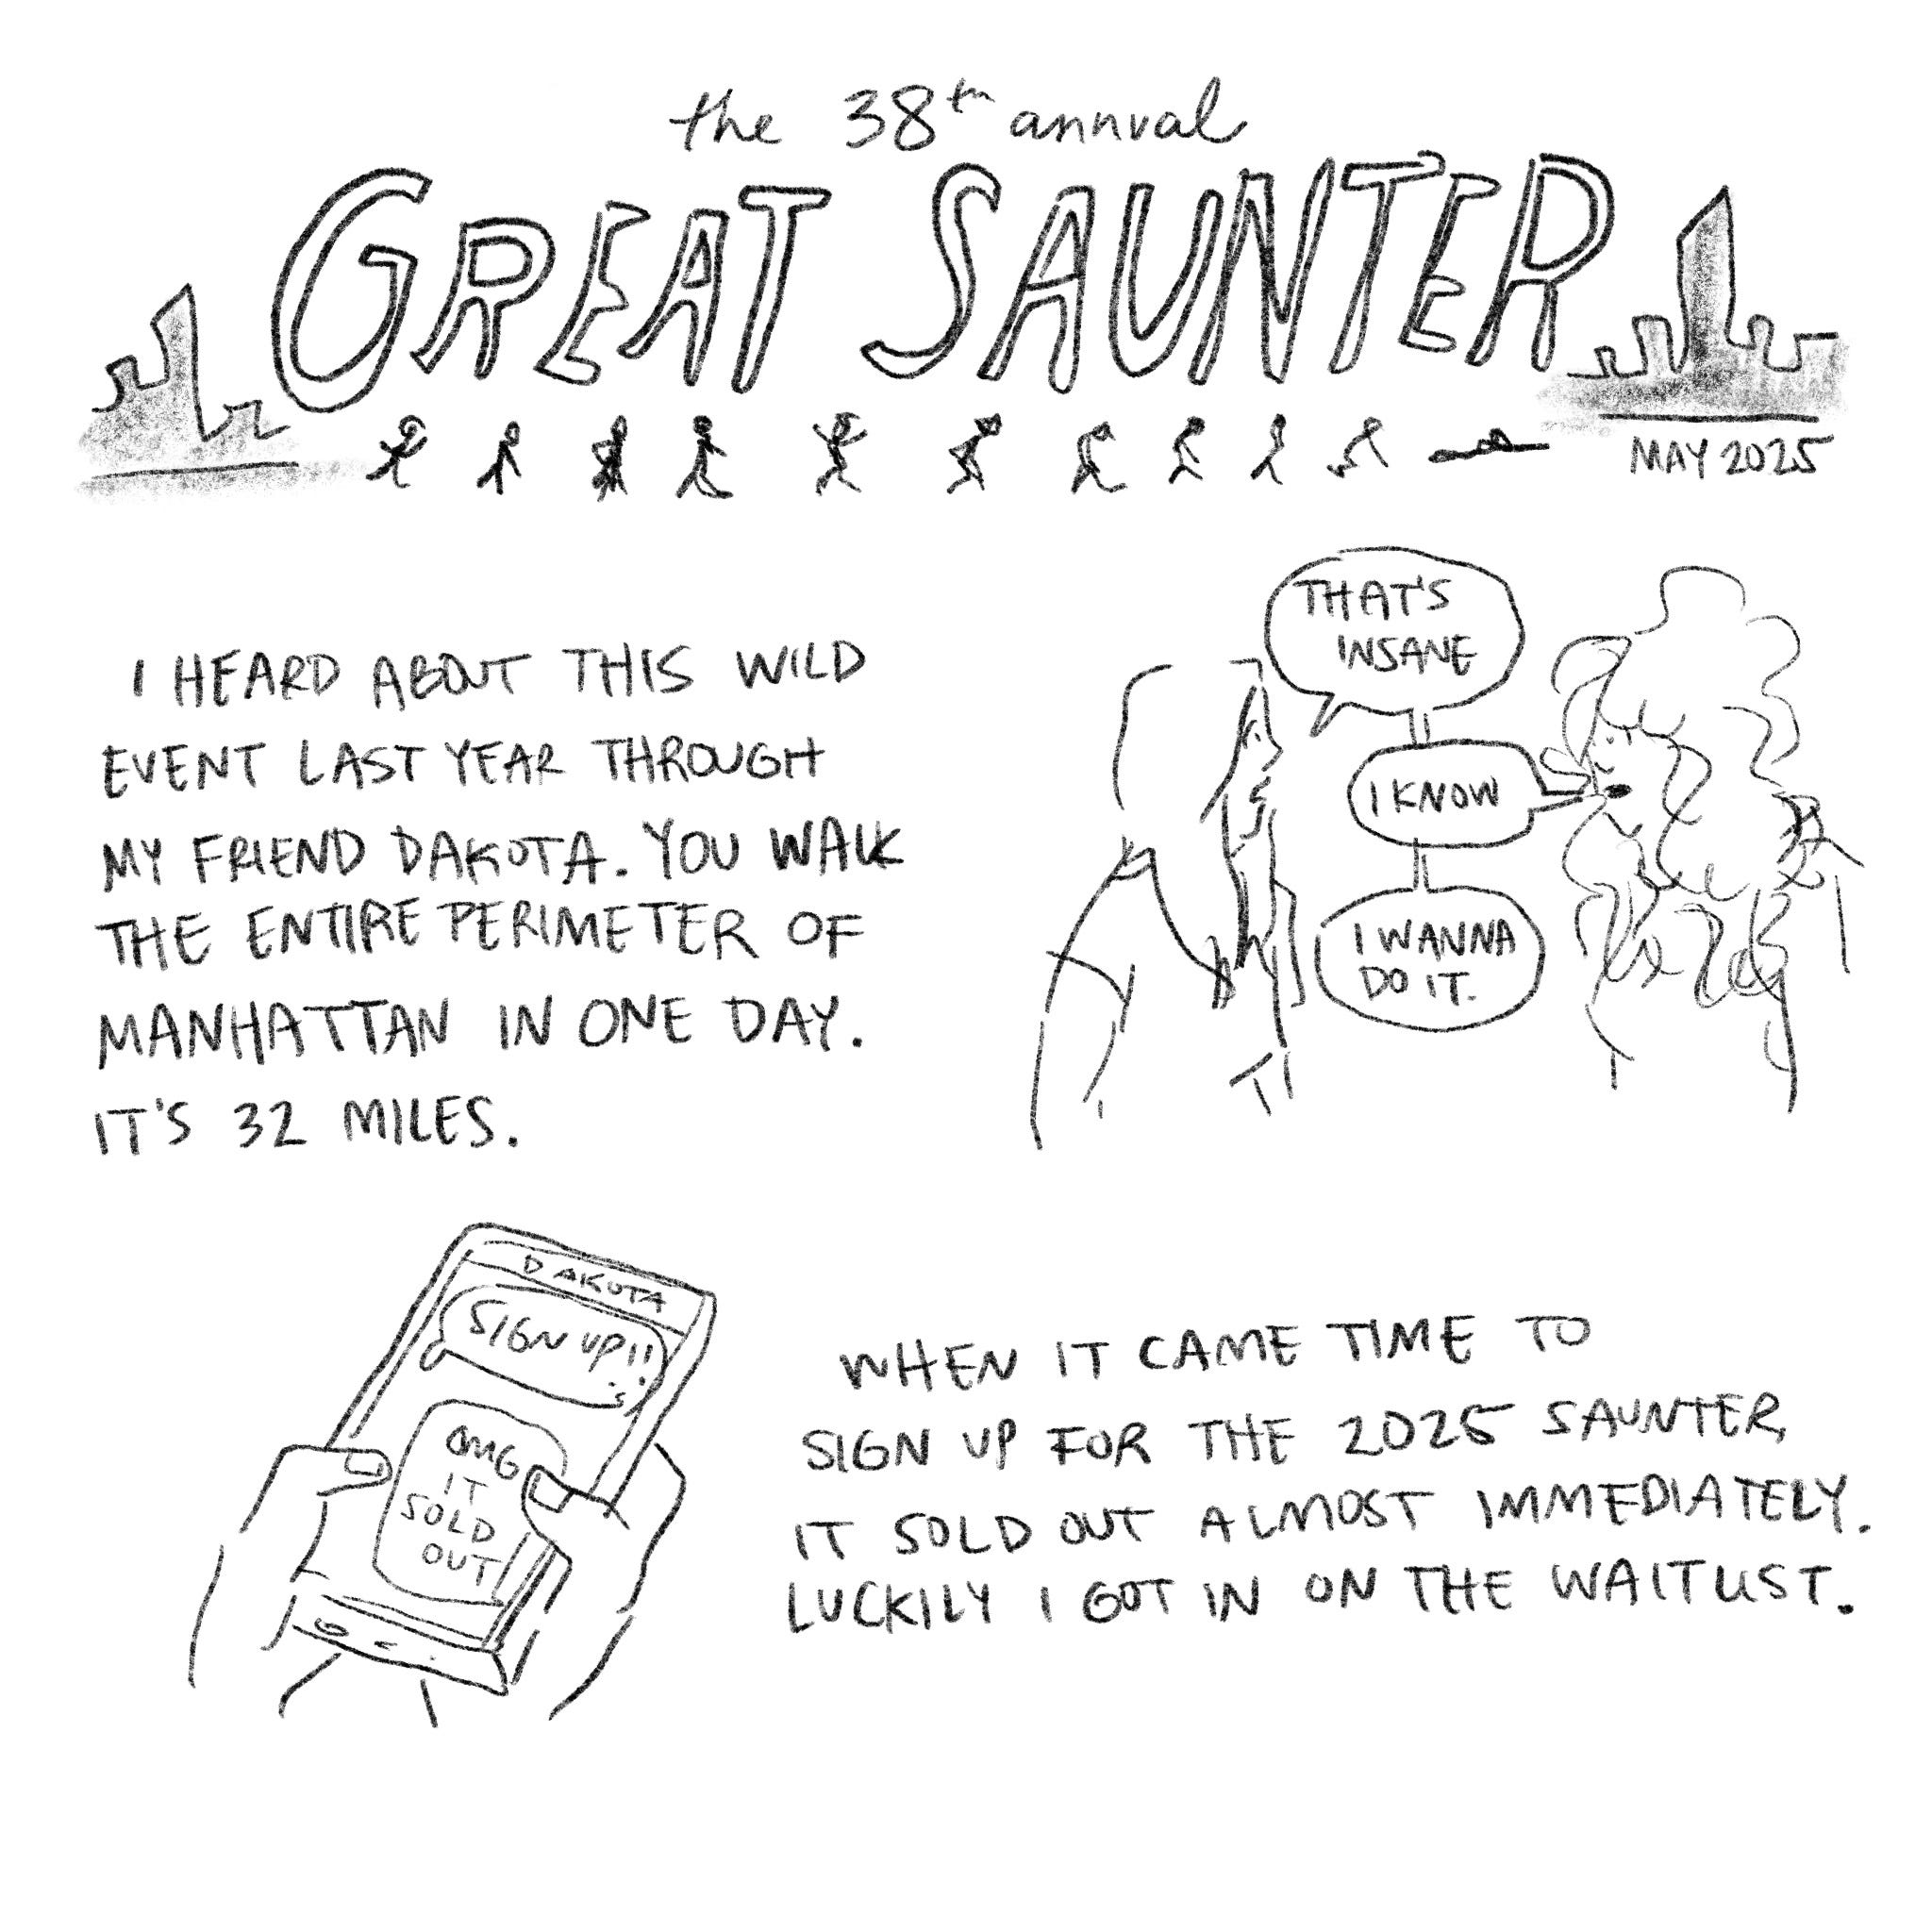 the 38th annual
GREAT SAUNTER
MAY 2025
I HEARD ABOUT THIS WILD
EVENT LAST YEAR THROUGH
MY FRIEND DAKOTA. YOU WALK
THE ENTIRE PERIMETER OF
MANHATTAN IN ONE DAY.
IT'S 32 MILES.
THAT'S
INSANE
I KNOW
I WANNA
DO IT.
DAKOTA
SIGN UP!!
OMG
IT
SOLD
OUT
WHEN IT CAME TIME TO
SIGN UP FOR THE 2025 SAUNTER,
IT SOLD OUT ALMOST IMMEDIATELY.
LUCKILY I GOT IN ON THE WAITLIST.